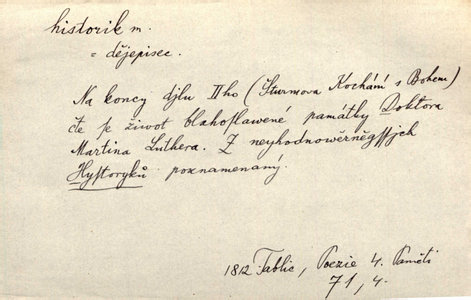 historik m.
= dějepisec.
Na koncy djlu II ho (Šturmova Kochání s Bohem)
čte se život blahoslawené památky Doktora
Martina Luthera. Z neyhodnowěrněgssjch
Hystoryků poznamenaný.
1812 Tablic, Poezie 4. Paměti
71, 4.